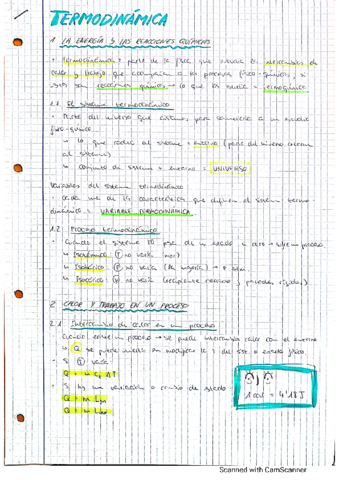 TERMODINÁMICA
1 LA ENERGÍA Y LAS REACCIONES QUÍMICAS
· Termodinámica: parte de la física que estudia los intercambios de
calor y trabajo que acompañan a los procesos físico-químicos, si
estos son reacciones químicas → lo que los estudia = termoquímica
1.1 El sistema termodinámico
· Parte del universo que aislamos para someterlo a un estudio
físico-químico
↳ lo que rodea al sistema = entorno (parte del universo externa
al sistema)
↳ conjunto de sistema + entorno = UNIVERSO
Variables del sistema termodinámico
· Cada una de las características que definen el sistema termo-
dinámico = VARIABLE TERMODINÁMICA.
1.2 Proceso termodinámico
· Cuando el sistema TD pasa de un estado a otro → sufre un proceso
↳ Isotérmico: T no varía
↳ Isobárico: P no varía
↳ Isocórico: V no varía (recipiente cerrado y paredes rígidas)
2 CALOR Y TRABAJO EN UN PROCESO
2.1 Intercambio de calor en un proceso
Cuando existe un proceso → se puede intercambiar calor con el entorno
↳ Q se puede invertir en modificar la T del sist. o estado físico
· Si T varía:
ΔT
· Si hay una variación o cambio de estado
OJO
1 cal = 4'18 J
Scanned with CamScanner